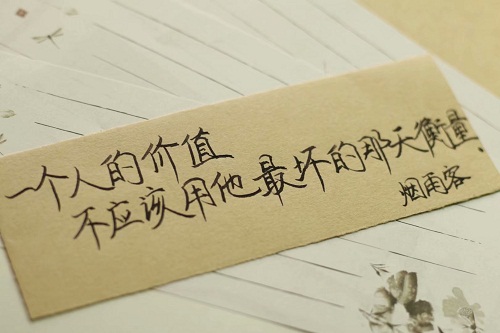 一个人的价值
不应该用他最坏的那天衡量.
烟雨客